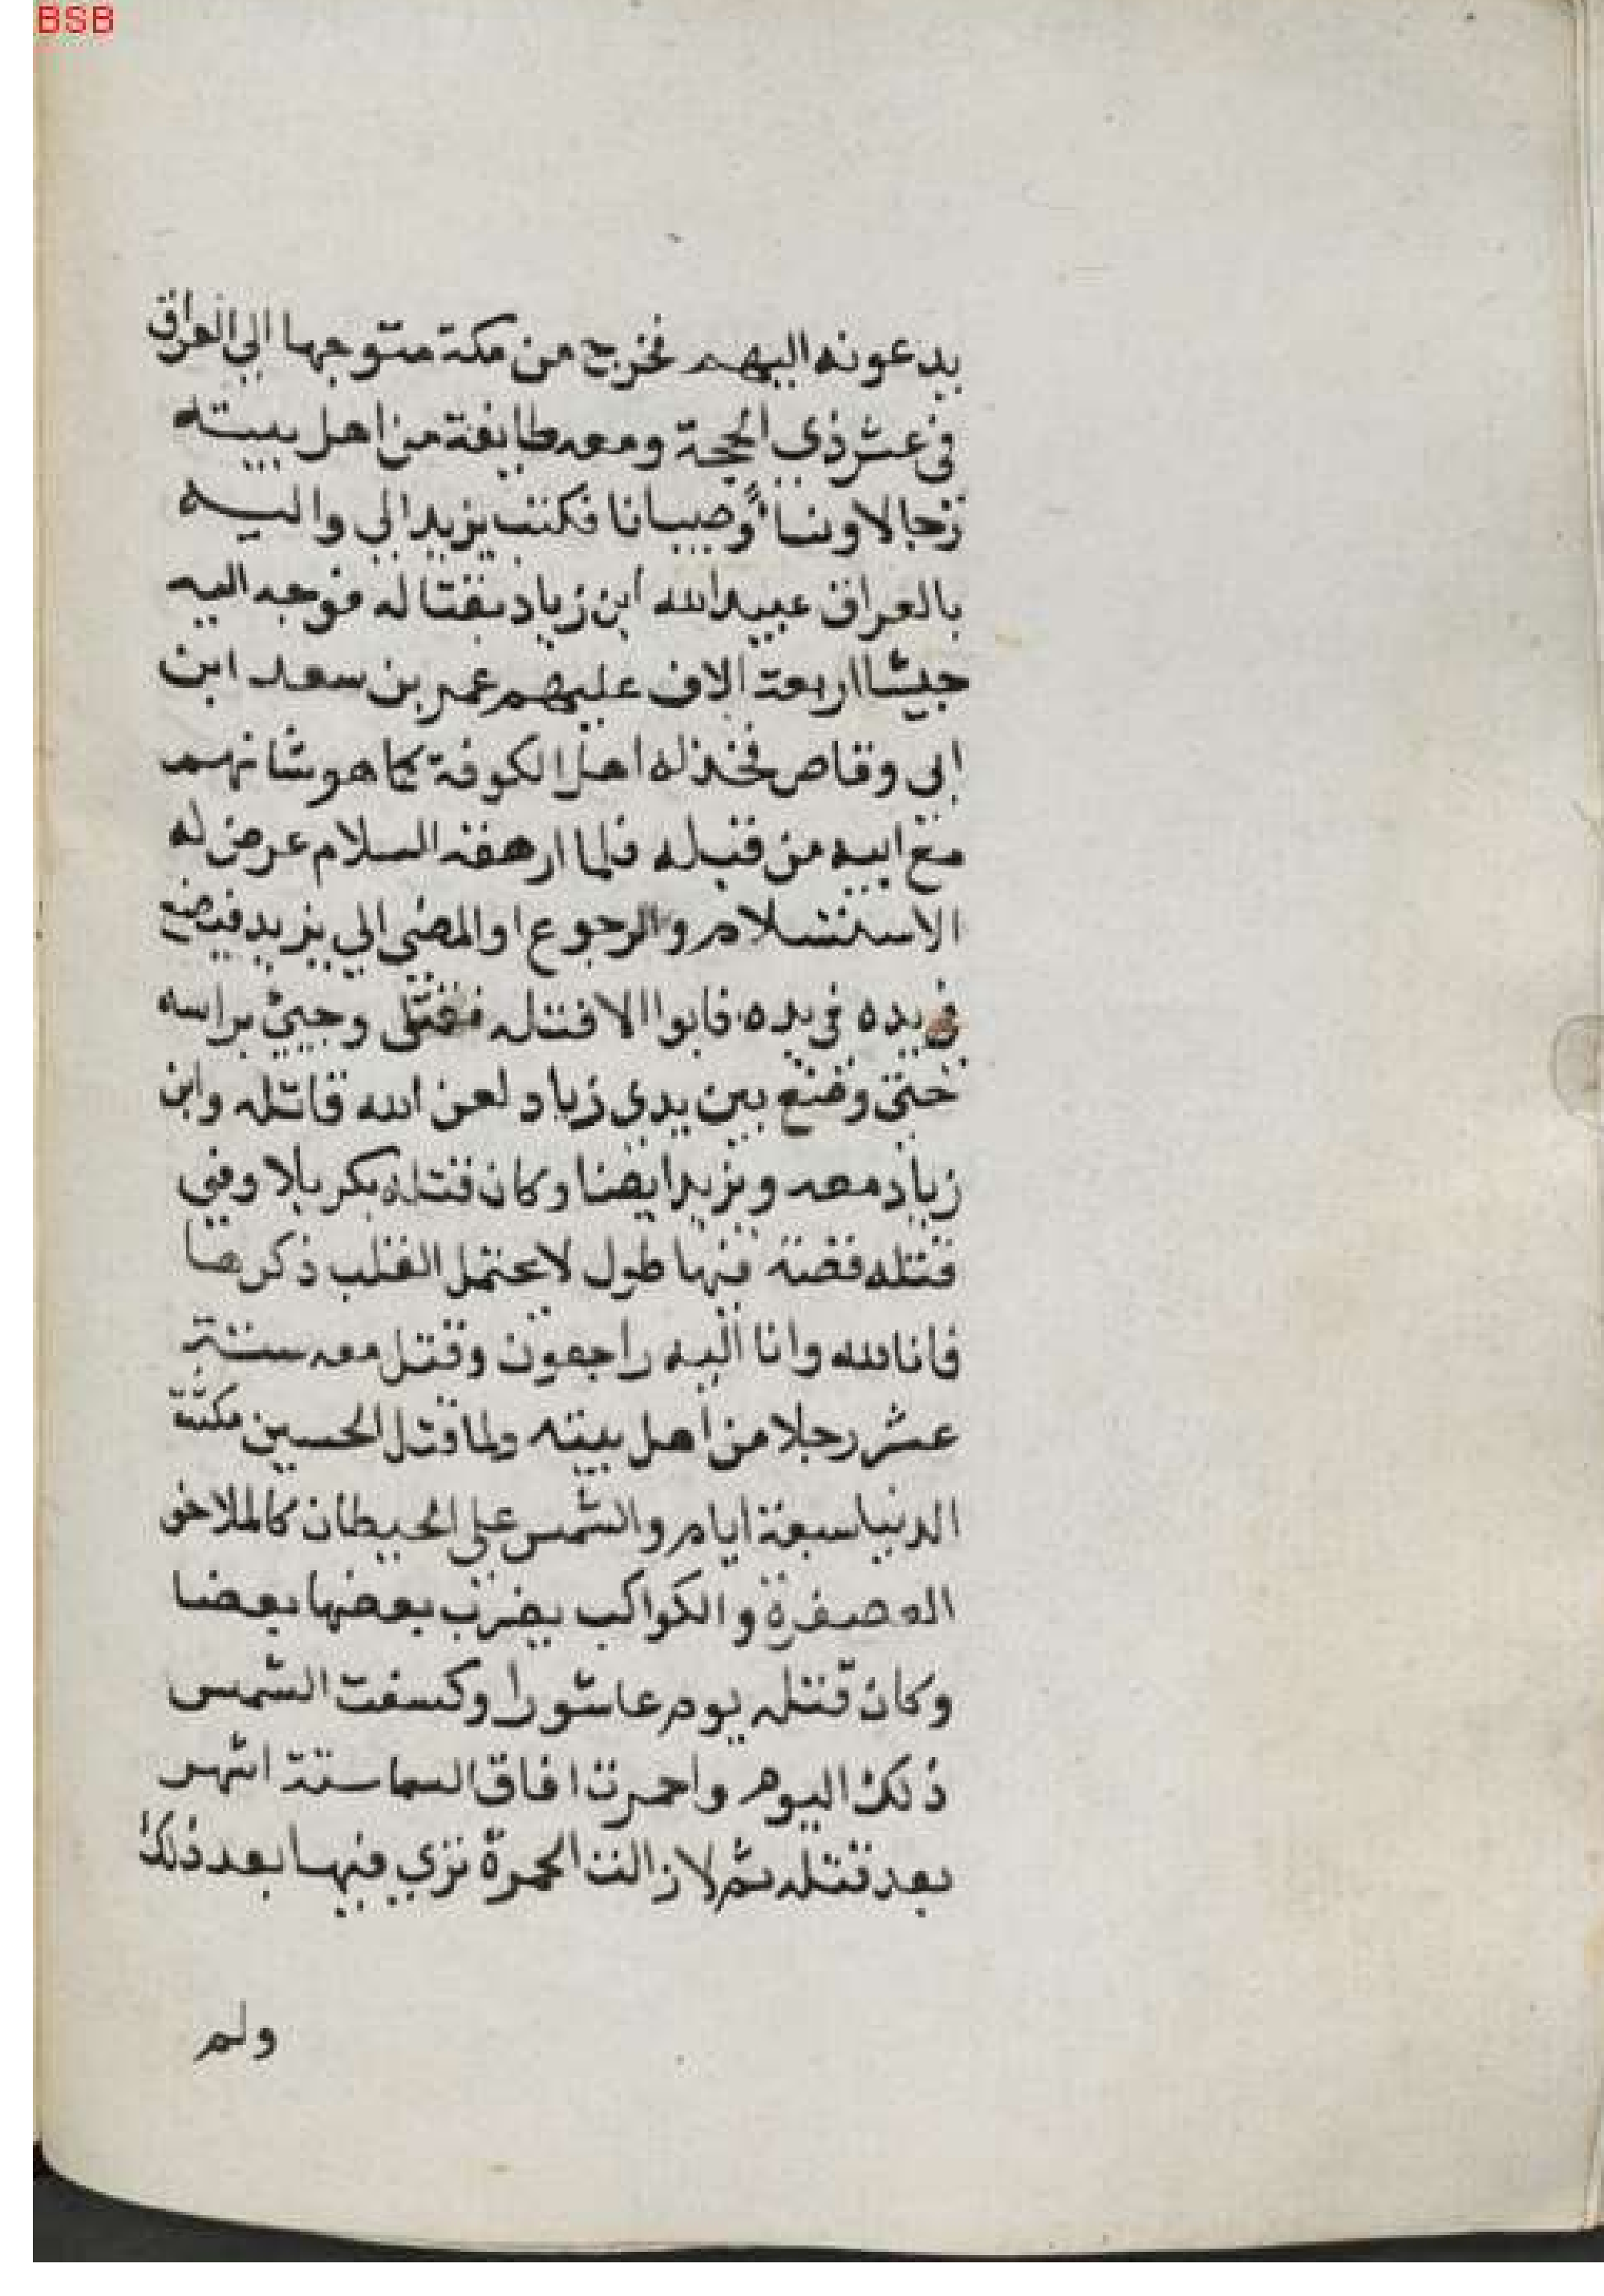 BSB
يدعونه اليهم فخرج من مكة متوجها الي العراق
في عشر ذي الحجة ومعه طايفة من اهل بيته
رجالا ونساً وصبيانا فكتب يزيد الي واليه
بالعراق عبيد الله ابن زياد بقتاله فوجه اليه
جيشا اربعة الاف عليهم عمر بن سعد ابن
ابي وقاص فخذله اهل الكوفة كما هو شانهم
مع ابيه من قبله فلما ارهقه السلام عرض له
الاستسلام والرجوع او المضي الي يزيد فيضع
في يده في يده فابوا الا قتله فقتل وجيئ براسه
حتي وضع بين يدي زياد لعن الله قاتله وابن
زياد معه ويزيد ايضا وكان قتله بكربلا وفي
قتله قصة فيها طول لا يحتمل القلب ذكرها
فانا لله وانا اليه راجعون وقتل معه ستة
عشر رجلا من اهل بيته ولما قتل الحسين مكثة
الدنيا سبعة ايام والشمس علي الحيطان كالملاحف
المعصفرة والكواكب يضرب بعضها بعضا
وكان قتله يوم عاشورا وكسفت الشمس
ذلك اليوم واحمرت افاق السما ستة اشهر
بعد قتله ثم لا زالت الحمرة تري فيها بعد ذلك
ولم